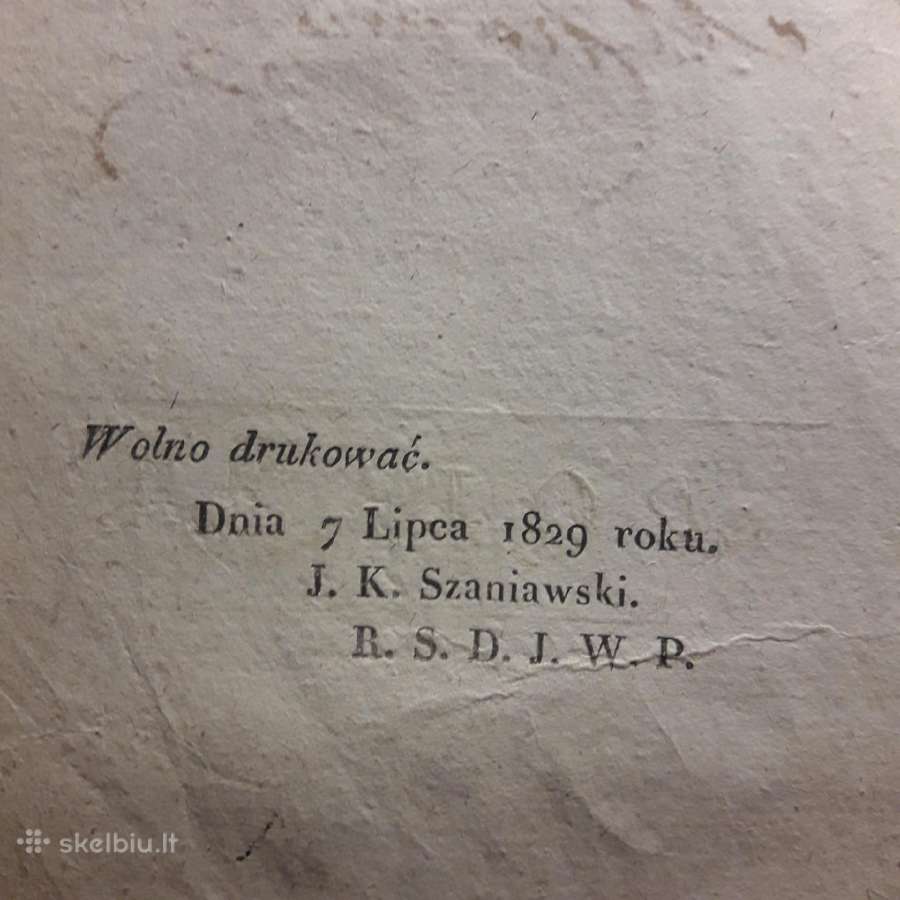 Wolno drukować.
Dnia 7 Lipca 1829 roku.
J. K. Szaniawski.
R. S. D. J. W. P.
skelbiu.lt